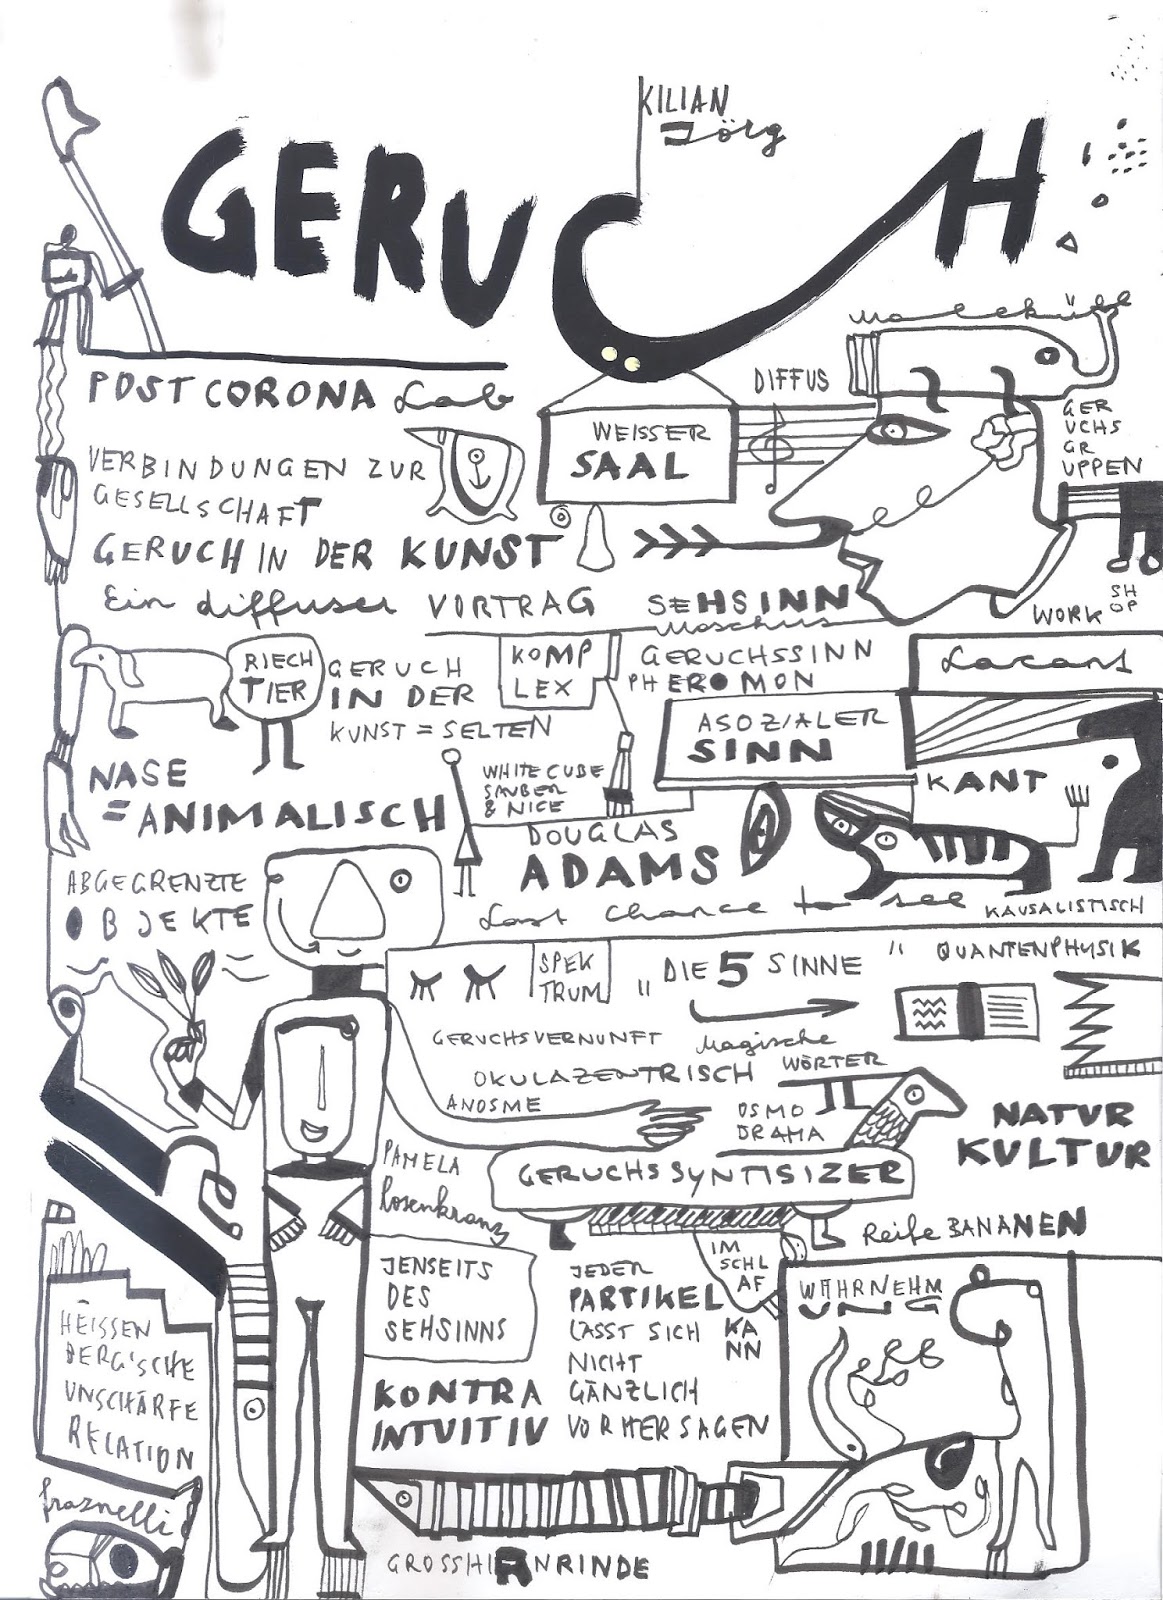 KILIAN
Jörg
GERUCH
Moleküle
POSTCORONA Lab
DIFFUS
WEISSER
SAAL
GER
UCHS
GR
UPPEN
VERBINDUNGEN ZUR
GESELLSCHAFT
GERUCH IN DER KUNST
Ein diffuser VORTRAG
SEHSINN
Moschus
WORK
SH
OP
RIECH
TIER
GERUCH
IN DER
KUNST = SELTEN
KOMP
LEX
GERUCHSSINN
PHEROMON
Lacans
ASOZIALER
SINN
KANT
NASE
=ANIMALISCH
WHITE CUBE
SAUBER
& NICE
DOUGLAS
ADAMS
Last Chance to see
KAUSALISTISCH
ABGEGRENZTE
OBJEKTE
SPEK
TRUM
"DIE 5 SINNE"
QUANTENPHYSIK
GERUCHSVERNUNFT
Magische
WÖRTER
OKULAZENTRISCH
ANOSME
OSMO
DRAMA
NATUR
KULTUR
PAMELA
Rosenkranz
GERUCHSSYNTISIZER
Reife BANANEN
JENSEITS
DES
SEHSINNS
IM
SCHL
AF
JEDER
PARTIKEL
LÄSST SICH
KA
NN
NICHT
GÄNZLICH
VORHERSAGEN
WAHRNEHM
UNG
HEISSEN
BERG'SCHE
UNSCHÄRFE
RELATION
KONTRA
INTUITIV
fraznelli
GROSSHIRNRINDE